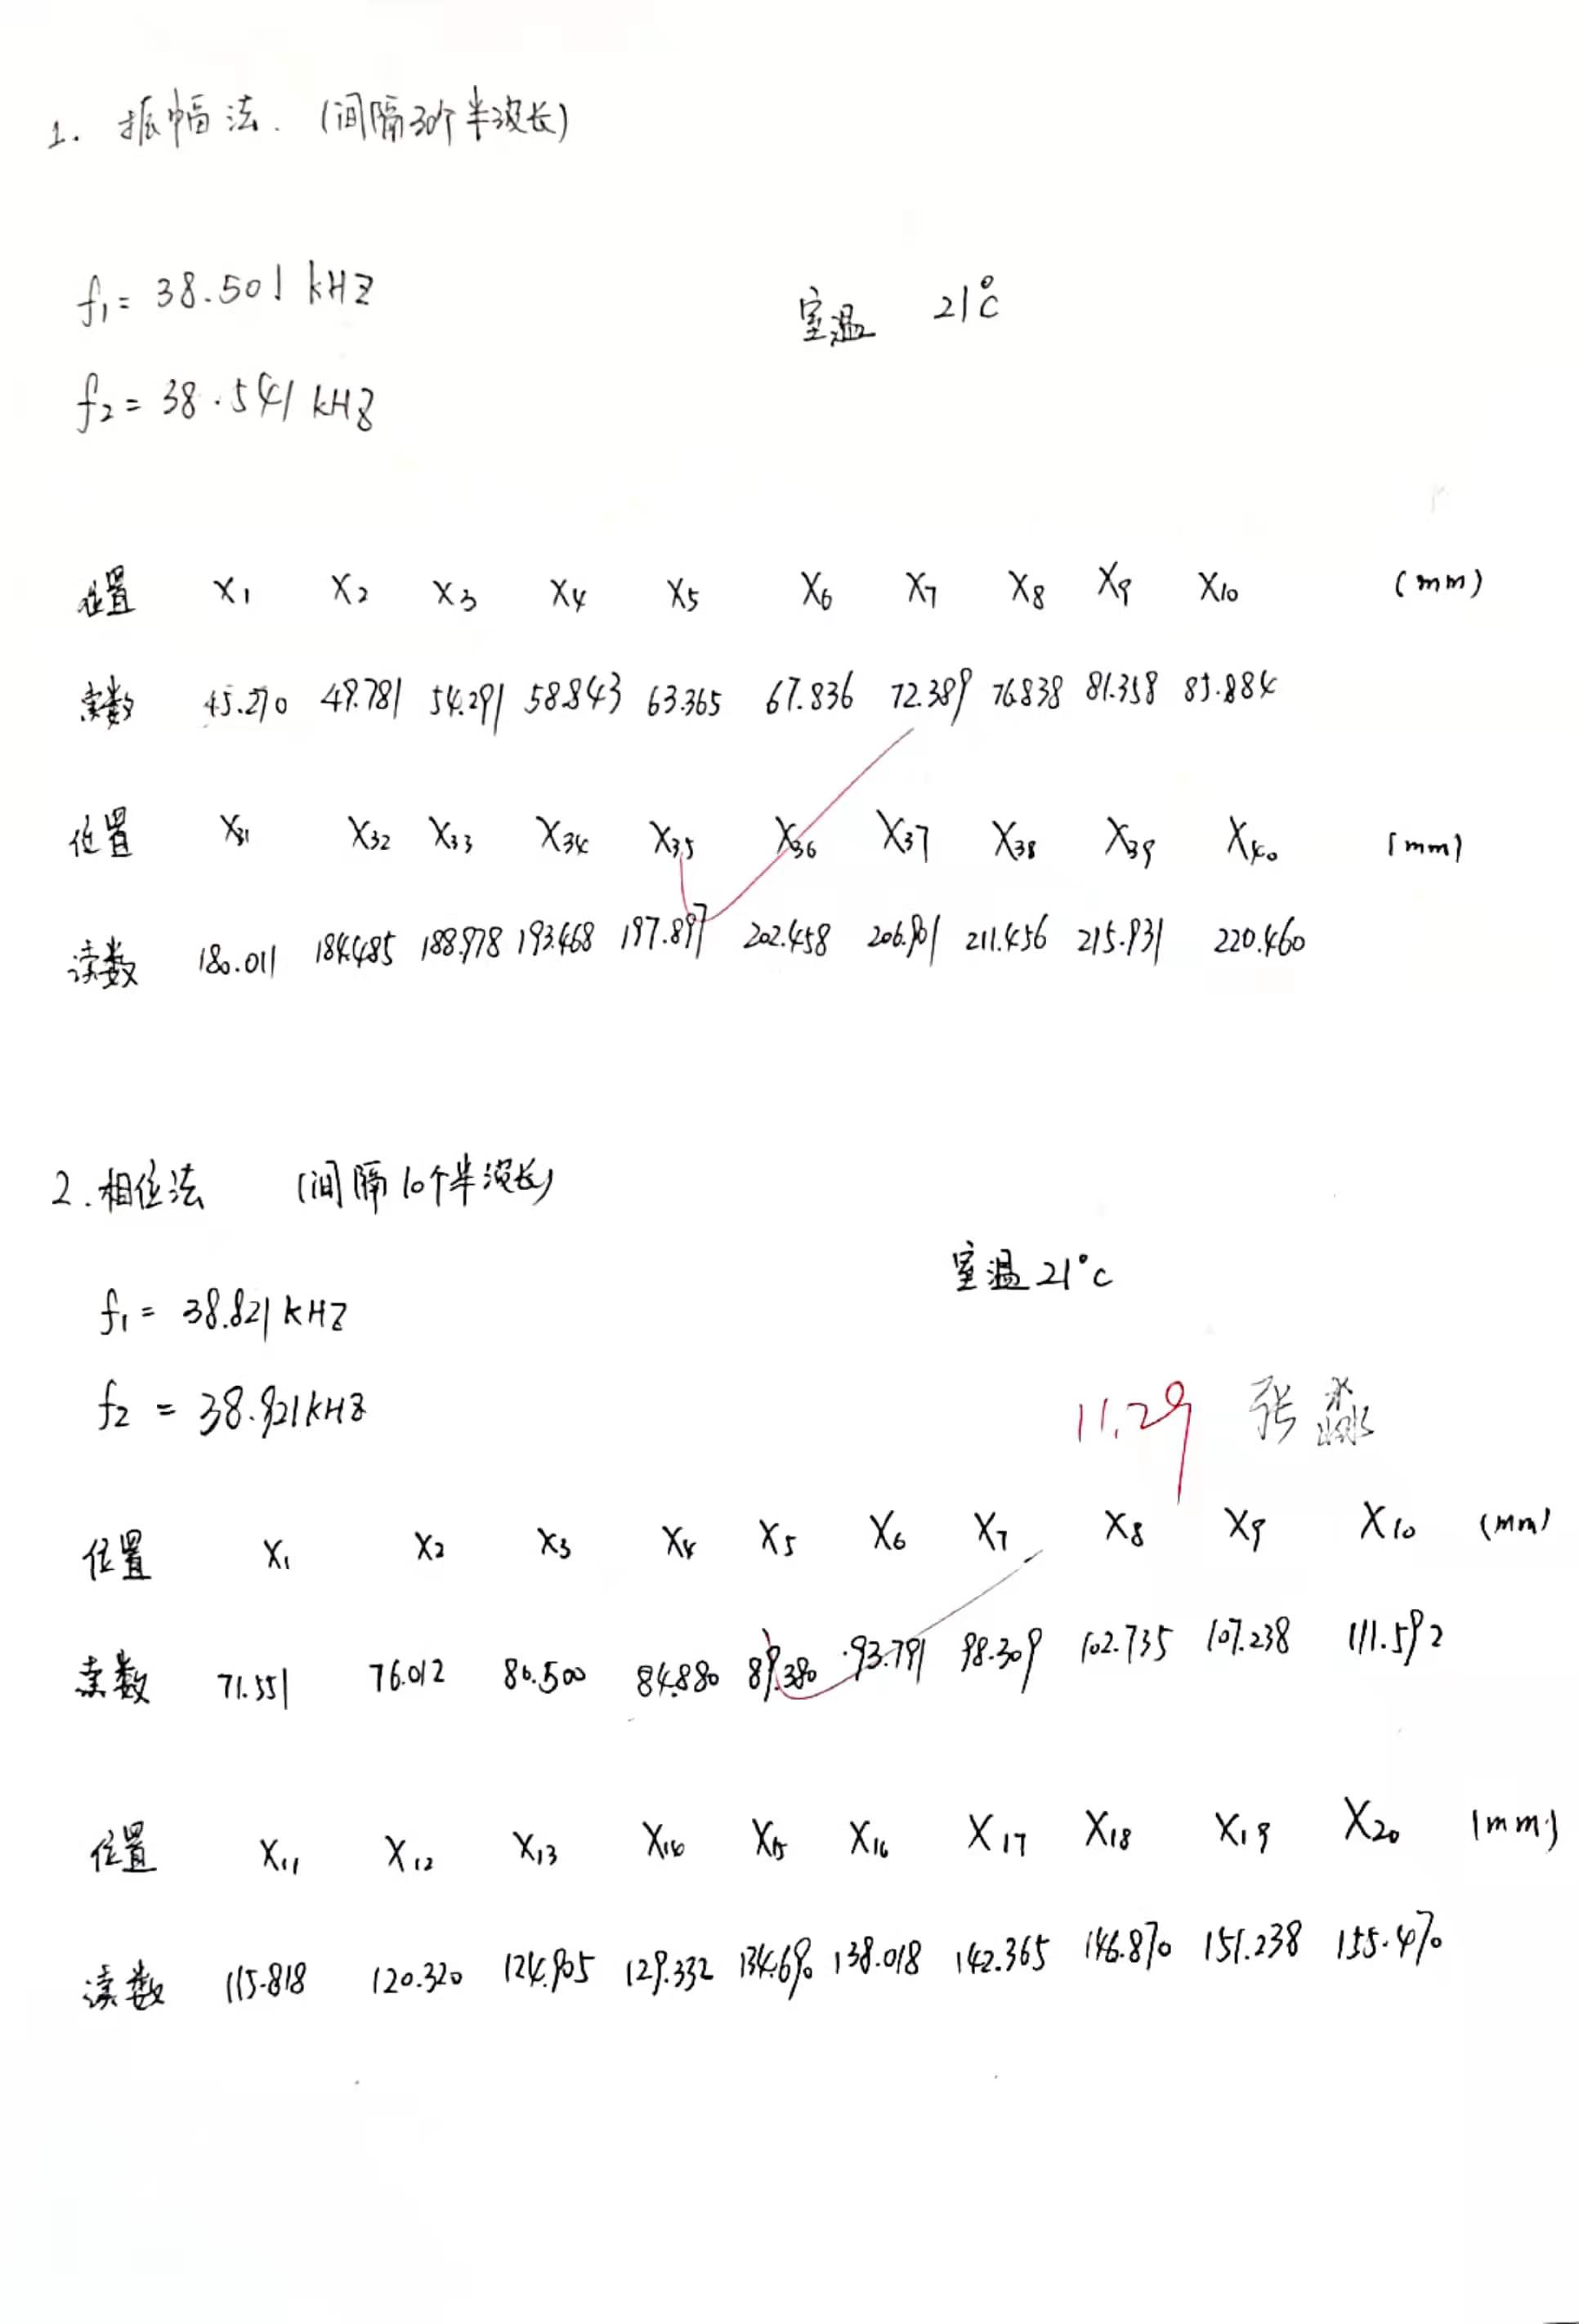 1. 振幅法. (间隔30个半波长)
f₁= 38.501 kHz
室温 21°C
f₂= 38.541 kHz
位置 X₁ X₂ X₃ X₄ X₅ X₆ X₇ X₈ X₉ X₁₀ (mm)
读数 45.270 49.781 54.291 58.843 63.365 67.836 72.389 76.838 81.358 85.884
位置 X₃₁ X₃₂ X₃₃ X₃₄ X₃₅ X₃₆ X₃₇ X₃₈ X₃₉ X₄₀ (mm)
读数 180.011 184.485 188.978 193.468 197.897 202.458 206.901 211.456 215.931 220.460
2. 相位法 (间隔10个半波长)
室温 21°C
f₁= 38.821 kHz
f₂ = 38.921 kHz
11.29 张淼
位置 X₁ X₂ X₃ X₄ X₅ X₆ X₇ X₈ X₉ X₁₀ (mm)
读数 71.551 76.012 80.500 84.880 89.380 93.791 98.309 102.735 107.238 111.592
位置 X₁₁ X₁₂ X₁₃ X₁₄ X₁₅ X₁₆ X₁₇ X₁₈ X₁₉ X₂₀ (mm)
读数 115.818 120.320 124.905 129.332 134.690 138.018 142.365 146.870 151.238 155.470